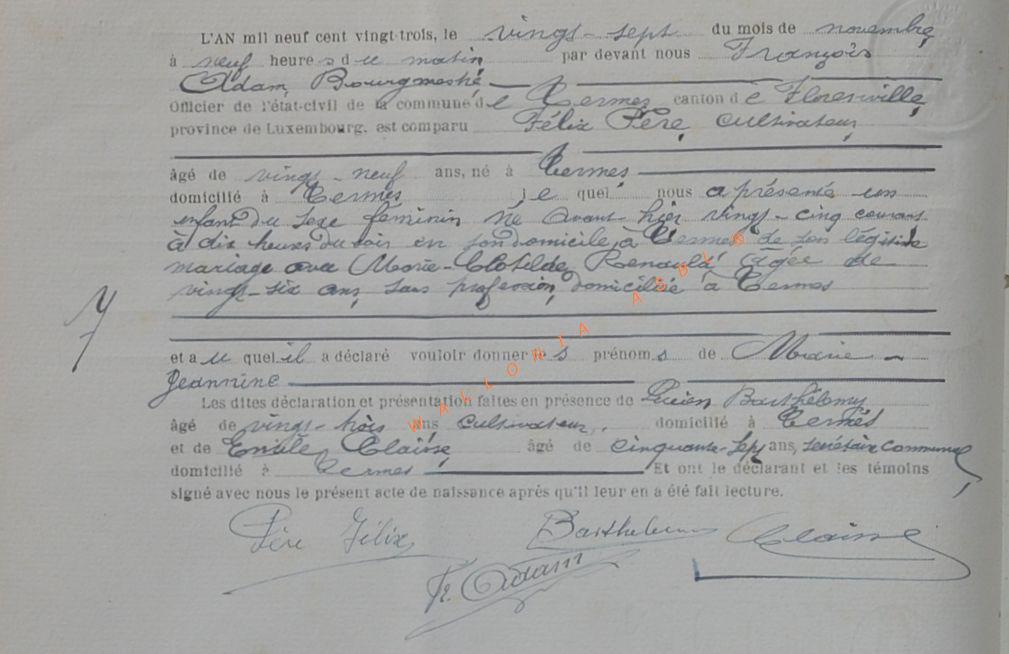 L'AN mil neuf cent vingt-trois, le vingt-sept du mois de novembre,
à neuf heures du matin par devant nous François
Adam, Bourgmestre
Officier de l'état-civil de la commune de Termes canton de Florenville,
province de Luxembourg, est comparu Félix Père, cultivateur,
âgé de vingt-neuf ans, né à Termes,
domicilié à Termes, lequel nous a présenté un
enfant du sexe féminin né avant hier vingt-cinq courant
à dix heures du soir en son domicile, à Termes de son légitime
mariage avec Marie-Clotilde, Renauld, âgée de
vingt-six ans, sans profession, domiciliée à Termes
7
et auquel il a déclaré vouloir donner les prénoms de Marie-
Jeannine
Les dites déclaration et présentation faites en présence de Lucien Barthélemy
âgé de vingt-trois ans cultivateur, domicilié à Termes
et de Emile, Claisse, âgé de cinquante-sept ans, secrétaire communal,
domicilié à Termes Et ont le déclarant et les témoins
signé avec nous le présent acte de naissance après qu'il leur en a été fait lecture.
Père Félix Barthélemy Claisse
Fr. Adam
WALLONIA ASBL